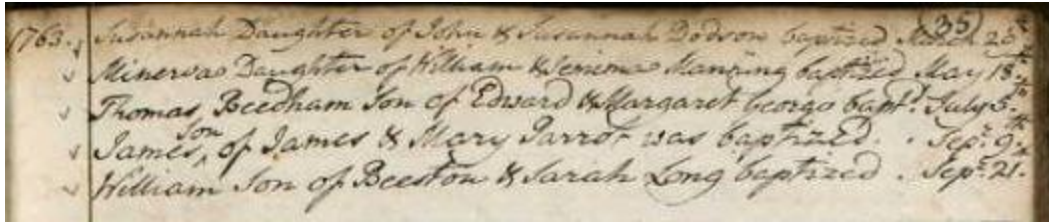 35
1763. Susannah Daughter of John & Susannah Dodson baptized March 20th
Minerva Daughter of William & Jemima Manning baptized May 18th
Thomas Beedham Son of Edward & Margaret George bapt. July 5th
James, son of James & Mary Parrot was baptized. Sepr. 9th
William Son of Beeston & Sarah Long baptized. Sepr. 21.